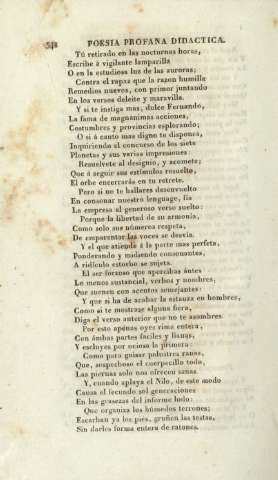 348 POESIA PROFANA DIDACTICA.
Tú retirado en las nocturnas horas,
Escribe á vigilante lamparilla
O en la estudiosa luz de las auroras;
Contra el rapaz que la razon humilla
Remedios nuevos, con primor juntando
En los versos deleite y maravilla.
Y si te instiga mas, dulce Fernando,
La fama de magnánimas acciones,
Costumbres y provincias esplorando;
O si á canto mas digno te dispones,
Inquiriendo al concurso de los siete
Planetas y sus varias impresiones:
Resuelvete al designio, y acomete;
Que á seguir sus estímulos resuelto,
El orbe encerrarás en tu retrete.
Pero si no te hallares desenvuelto
En consonar nuestro lenguage, fia
La empresa al generoso verso suelto:
Porque la libertad de su armonía,
Como solo sus números respeta,
De emparentar las voces se desvia.
Y el que atiende á la parte mas perfeta,
Ponderando y midiendo consonantes,
A ridículo estorbo se sujeta.
El ser forzoso que apercibas ántes
Lo menos sustancial, verbos y nombres,
Que suenen con acentos semejantes:
Y que si ha de acabar la estanza en hombres,
Como si te mostrase alguna fiera,
Diga el verso anterior que no te asombres
Por esto apenas oyes rima entera,
Con ámbas partes faciles y llanas,
Y escluyes por ociosa la primera:
Como para guisar palustres ranas,
Que, sospechoso el cuerpecillo todo,
Las piernas solo nos ofrecen sanas.
Y, cuando aplaya el Nilo, de este modo
Causa el fecundo sol generaciones
En las grasezas del informe lodo:
Que organiza los húmedos terrones;
Escarban ya los pies, gruñen las testas,
Sin darles forma entera de ratones.